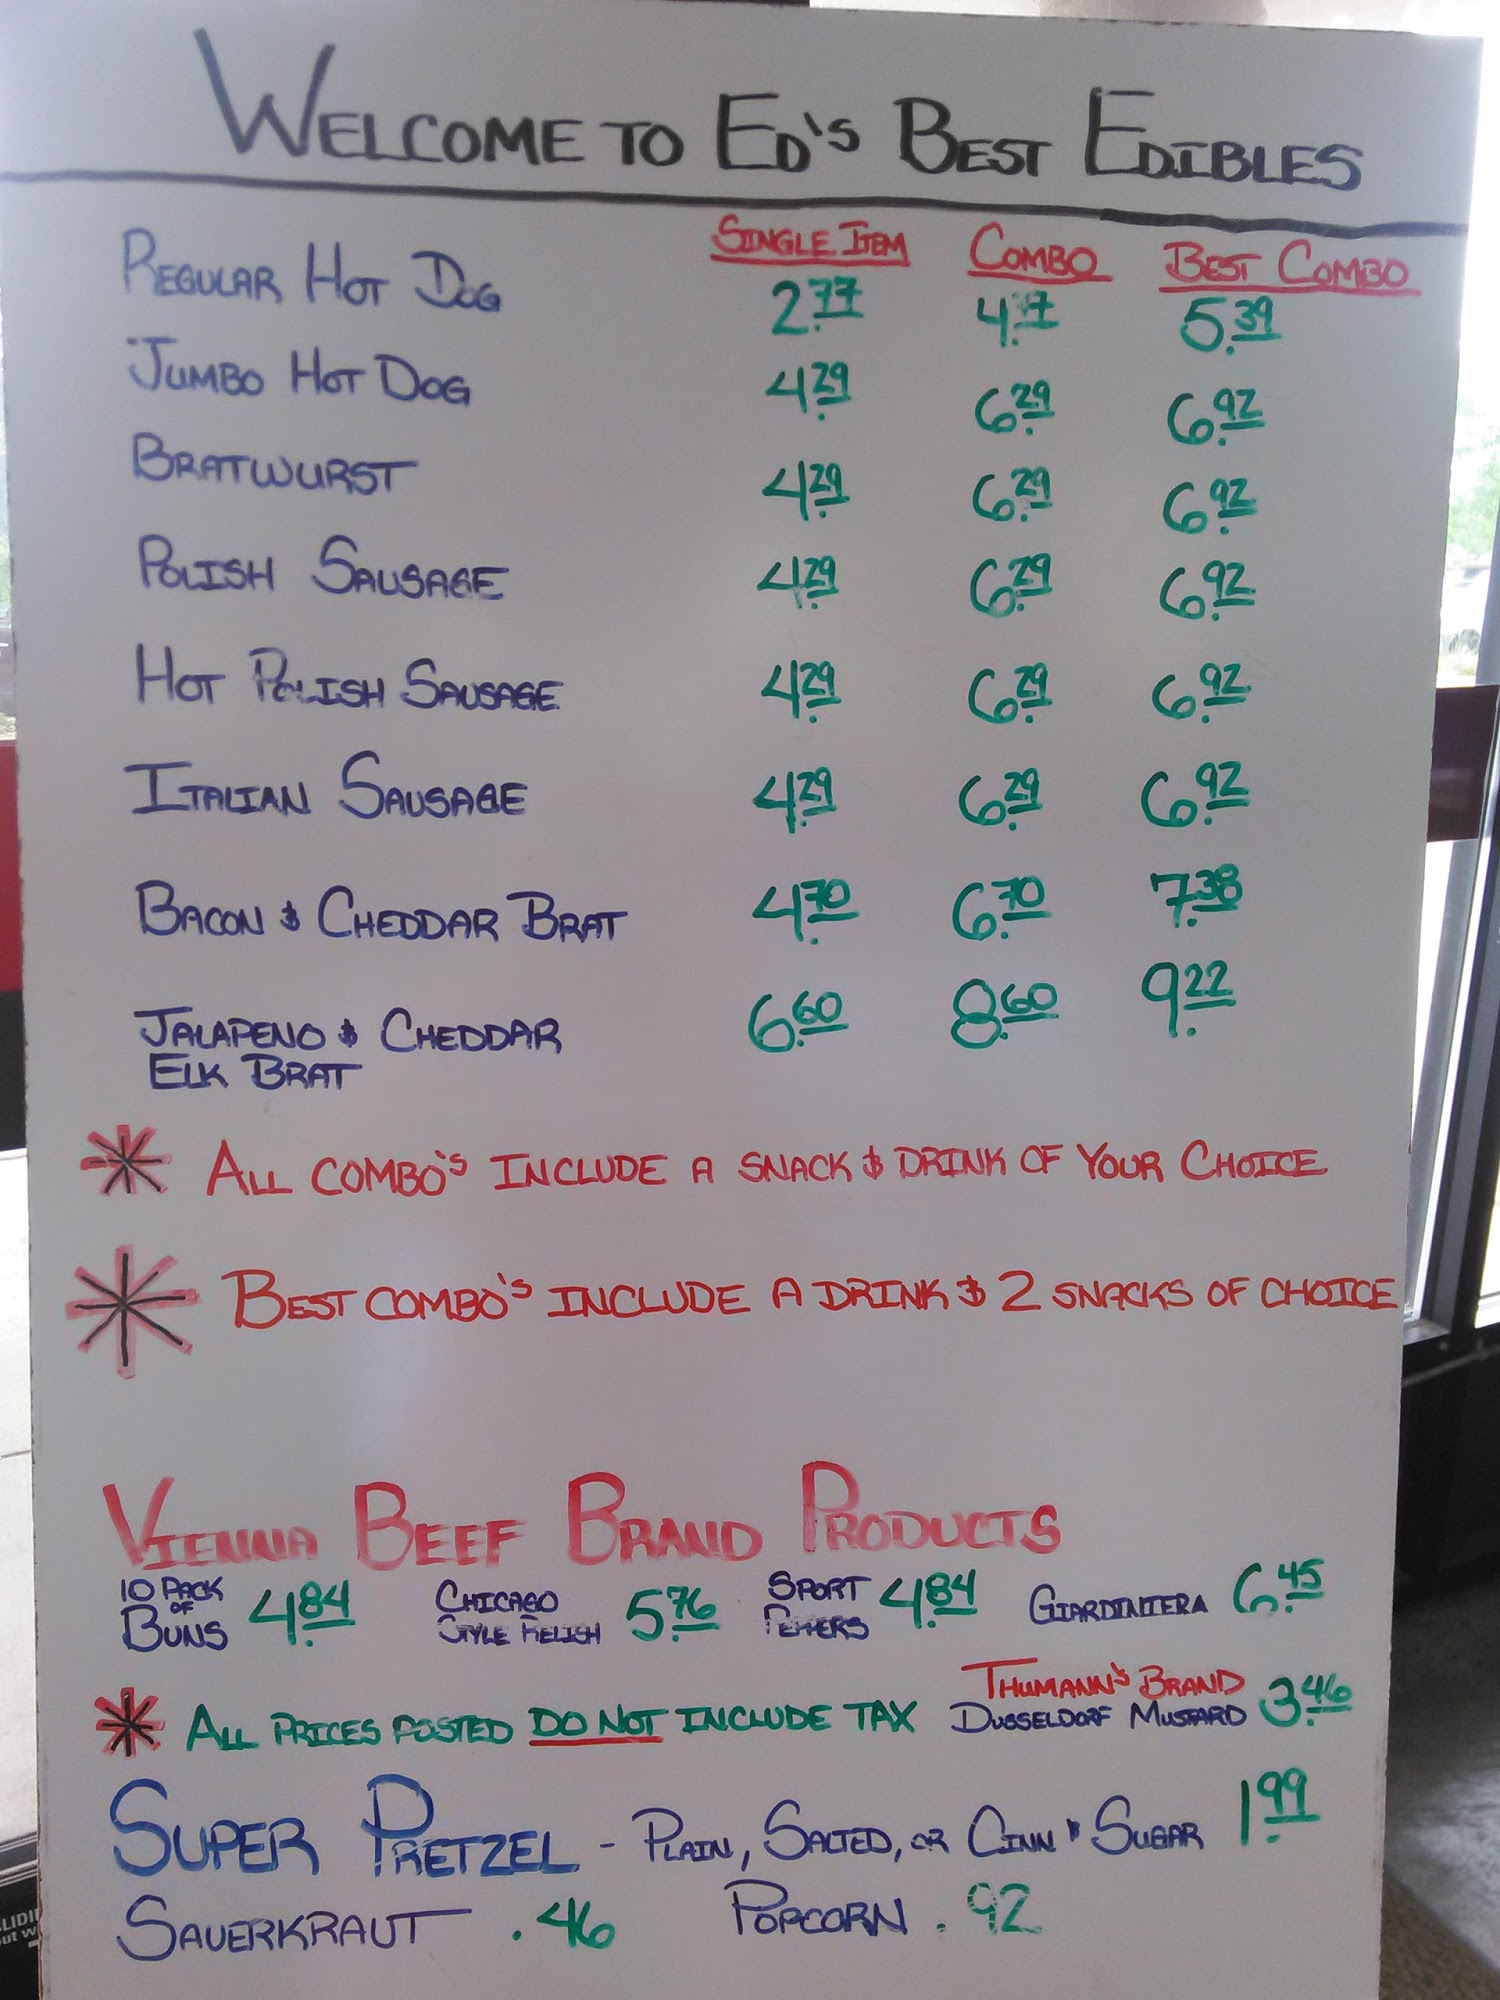 WELCOME TO ED'S BEST EDIBLES
SINGLE ITEM COMBO BEST COMBO
REGULAR HOT DOG 2.77 4.17 5.39
JUMBO HOT DOG 4.29 6.29 6.92
BRATWURST 4.29 6.29 6.92
POLISH SAUSAGE 4.29 6.29 6.92
HOT POLISH SAUSAGE 4.29 6.29 6.92
ITALIAN SAUSAGE 4.29 6.29 6.92
BACON & CHEDDAR BRAT 4.70 6.70 7.38
JALAPENO & CHEDDAR 6.60 8.60 9.22
ELK BRAT
* ALL COMBO'S INCLUDE A SNACK & DRINK OF YOUR CHOICE
* BEST COMBO'S INCLUDE A DRINK & 2 SNACKS OF CHOICE
VIENNA BEEF BRAND PRODUCTS
10 PACK OF BUNS 4.84 CHICAGO STYLE RELISH 5.76 SPORT PEPPERS 4.84 GIARDINIERA 6.45
* ALL PRICES POSTED DO NOT INCLUDE TAX
THUMANN'S BRAND
DUSSELDORF MUSTARD 3.46
SUPER PRETZEL - PLAIN, SALTED, OR CINN & SUGAR 1.99
SAUERKRAUT .46 POPCORN .92